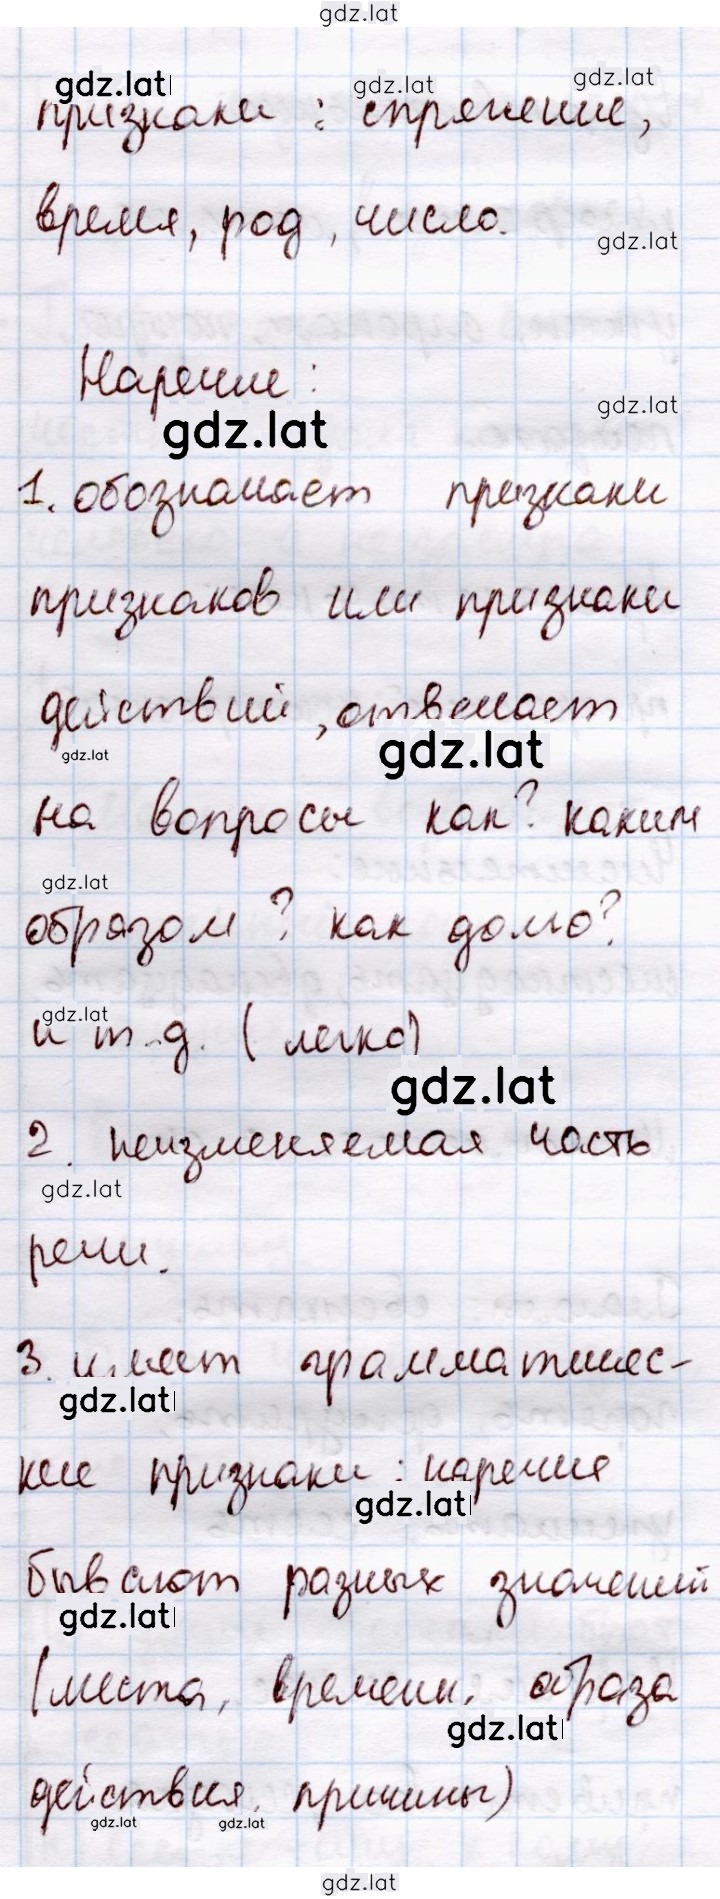 gdz.lat
gdz.lat gdz.lat gdz.lat
признаки : спряжение,
время, род, число.
gdz.lat
Наречие:
gdz.lat
gdz.lat
1. обозначает признаки
признаков или признаки
действий, отвечает
gdz.lat gdz.lat
на вопросы как? каким
gdz.lat
образом? как долго?
gdz.lat
и т.д. (легко)
gdz.lat
2. неизменяемая часть
gdz.lat
речи.
3. имеет грамматичес-
gdz.lat
кие признаки : наречия
gdz.lat
бывают разных значений
gdz.lat
(места, времени, образа
gdz.lat
действия, причины)
gdz.lat gdz.lat
gdz.lat